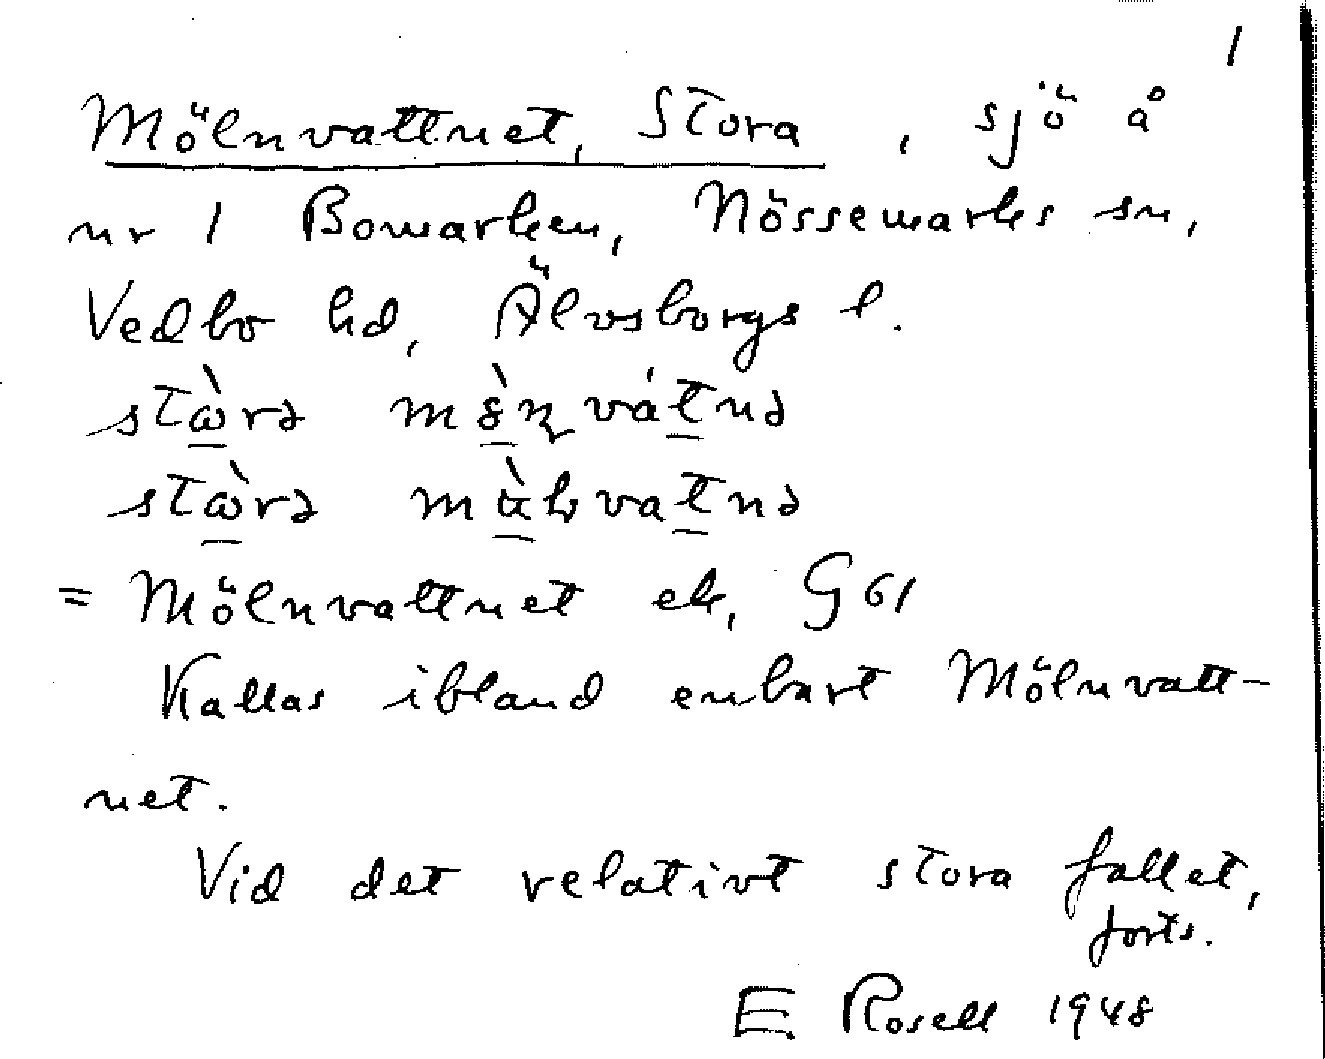 1
Mölnvattnet, Stora, sjö å
nr 1 Bomarken, Nössemarks sn,
Vedbo hd, Älvsborgs l.
= Mölnvattnet ek, G 61
Kallas ibland enbart Mölnvatt-
net.
Vid det relativt stora fallet,
forts.
E. Rosell 1948